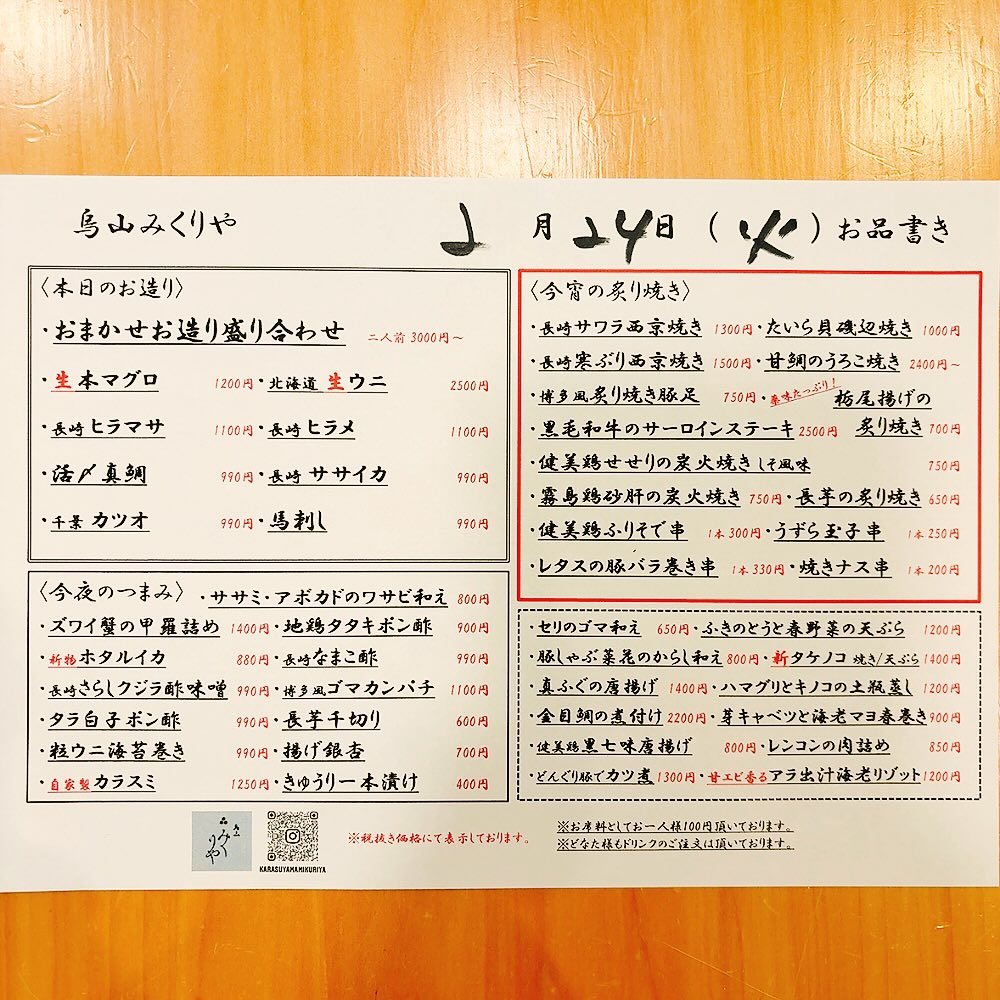 烏山みくりや 2月24日(火)お品書き
〈本日のお造り〉
・おまかせお造り盛り合わせ 二人前 3000円～
・生本マグロ 1200円・北海道 生ウニ 2500円
・長崎 ヒラマサ 1100円・長崎 ヒラメ 1100円
・活〆真鯛 990円・長崎 ササイカ 990円
・千葉 カツオ 990円・馬刺し 990円
〈今夜のつまみ〉 ・ササミ・アボカドのワサビ和え 800円
・ズワイ蟹の甲羅詰め 1400円・地鶏タタキポン酢 900円
・新物ホタルイカ 880円・長崎なまこ酢 990円
・長崎さらしクジラ酢味噌 990円・博多風ゴマカンパチ 1100円
・タラ白子ポン酢 990円・長芋千切り 600円
・粒ウニ海苔巻き 990円・揚げ銀杏 700円
・自家製カラスミ 1250円・きゅうり一本漬け 400円
〈今宵の炙り焼き〉
・長崎サワラ西京焼き 1300円・たいら貝磯辺焼き 1000円
・長崎寒ぶり西京焼き 1500円・甘鯛のうろこ焼き 2400円～
・博多風炙り焼き豚足 750円・薬味たっぷり！栃尾揚げの
・黒毛和牛のサーロインステーキ 2500円 炙り焼き 700円
・健美鶏せせりの炭火焼き しそ風味 750円
・霧島鶏砂肝の炭火焼き 750円・長芋の炙り焼き 650円
・健美鶏ふりそで串 1本300円・うずら玉子串 1本250円
・レタスの豚バラ巻き串 1本330円・焼きナス串 1本200円
・セリのゴマ和え 650円・ふきのとうと春野菜の天ぷら 1200円
・豚しゃぶ菜花のからし和え 800円・新タケノコ 焼き/天ぷら 1400円
・真ふぐの唐揚げ 1400円・ハマグリとキノコの土瓶蒸し 1200円
・金目鯛の煮付け 2200円・芽キャベツと海老マヨ春巻き 900円
・健美鶏黒七味唐揚げ 800円・レンコンの肉詰め 850円
・どんぐり豚でカツ煮 1300円・甘エビ香るアラ出汁海老リゾット 1200円
烏山
みくりや
KARASUYAMAMIKURIYA
※税抜き価格にて表示しております。
※お席料としてお一人様100円頂いております。
※どなた様もドリンクのご注文は頂いております。